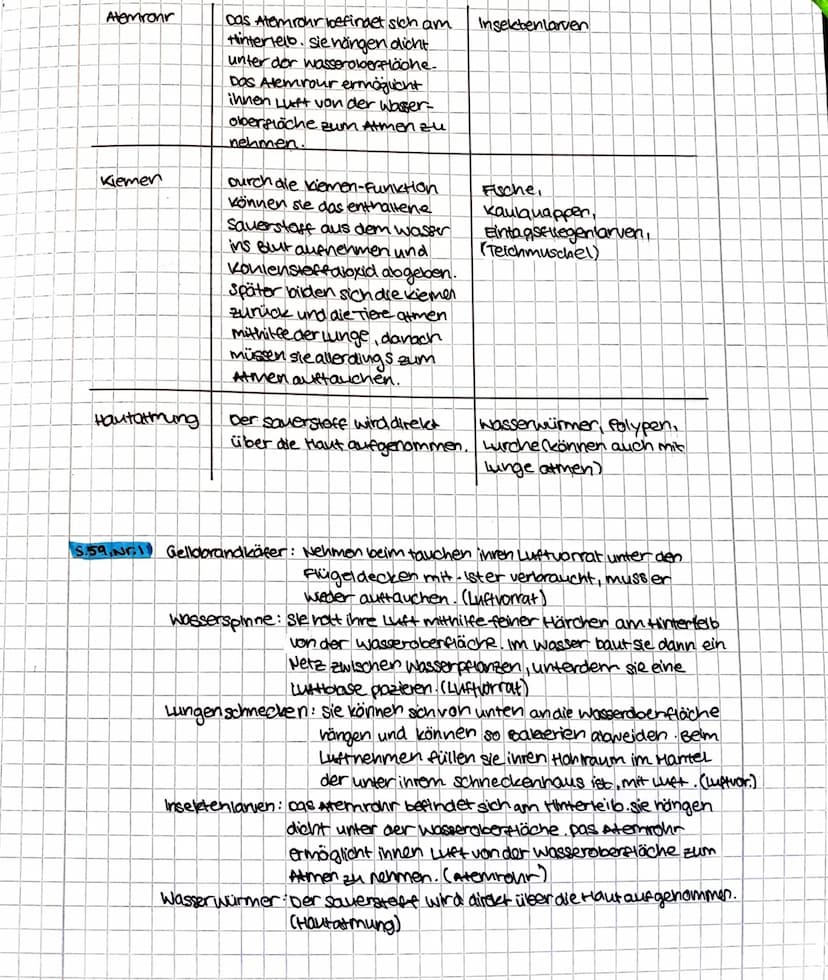 Atemrohr
Das Atemrohr befindet sich am
Hinterleib. Sie hängen dicht
unter der Wasseroberfläche.
Das Atemrour ermöglicht
ihnen Luft von der Wasser-
oberfläche zum Atmen zu
nehmen.
Insektenlarven
Kiemen
Durch die Kiemen-Funktion
können sie das enthaltene
Sauerstoff aus dem Wasser
ins Blut aufnehmen und
Kohlenstoffdioxid abgeben.
Später bilden sich die Kiemen
zurück und die Tiere atmen
mithilfe der Lunge, danach
müssen sie allerdings zum
Atmen auftauchen.
Fische,
Kaulquappen,
Eintagsfliegenlarven,
(Teichmuschel)
Hautatmung
Der Sauerstoff wird direkt
über die Haut aufgenommen.
Wasserwürmer, Polypen,
Lurche (können auch mit
Lunge atmen)
S.59, Nr.1)
Gelbrandkäfer: Nehmen beim tauchen ihren Luftvorrat unter den
Flügeldecken mit. Ist er verbraucht, muss er
wieder auftauchen. (Luftvorrat)
Wasserspinne: Sie holt ihre Luft mithilfe feiner Härchen am Hinterleib
von der Wasseroberfläche. Im Wasser baut sie dann ein
Netz zwischen Wasserpflanzen, unterdem sie eine
Luftblase pazieren. (Luftvorrat)
Lungenschnecken: Sie können sich von unten an die Wasseroberfläche
hängen und können so Bakterien abweiden. Beim
Luftnehmen füllen sie ihren Hohlraum im Mantel
der unter ihrem Schneckenhaus ist, mit Luft. (Luftvor.)
Insektenlarven: Das Atemrohr befindet sich am Hinterleib. Sie hängen
dicht unter der Wasseroberfläche. Das Atemrohr
ermöglicht ihnen Luft von der Wasseroberfläche zum
Atmen zu nehmen. (Atemrohr)
Wasserwürmer: Der Sauerstoff wird direkt über die Haut aufgenommen.
(Hautatmung)